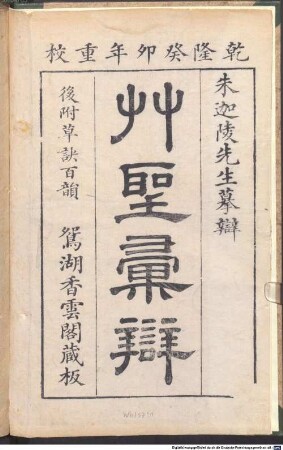 乾隆癸卯年重校
朱迦陵先生摹辯
艸聖彙辯
後附草訣百韻
鴛湖香雲閣藏板